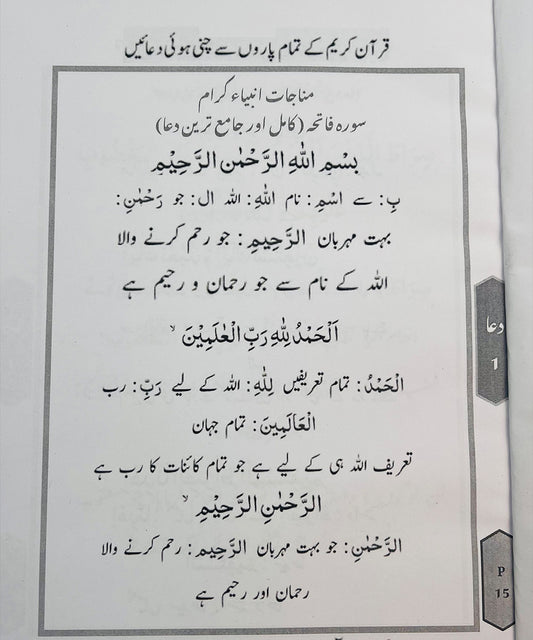 قرآن کریم کے تمام پاروں سے چنی ہوئی دعائیں
مناجات انبیاء کرام
سورہ فاتحہ (کامل اور جامع ترین دعا)
بِسْمِ اللّٰهِ الرَّحْمٰنِ الرَّحِيْمِ
بِ: سے اسْمِ: نام اللّٰهِ: اللہ ال: جو رَحْمٰنِ:
بہت مہربان الرَّحِيْمِ: جو رحم کرنے والا
اللہ کے نام سے جو رحمان و رحیم ہے
اَلْحَمْدُ لِلّٰهِ رَبِّ الْعٰلَمِيْنَ ۙ
الْحَمْدُ: تمام تعریفیں لِلّٰهِ: اللہ کے لیے رَبِّ: رب
الْعَالَمِيْنَ: تمام جہان
تعریف اللہ ہی کے لیے ہے جو تمام کائنات کا رب ہے
الرَّحْمٰنِ الرَّحِيْمِ ۙ
الرَّحْمٰنِ: جو بہت مہربان الرَّحِيْمِ: رحم کرنے والا
رحمان اور رحیم ہے
دعا
1
P
15